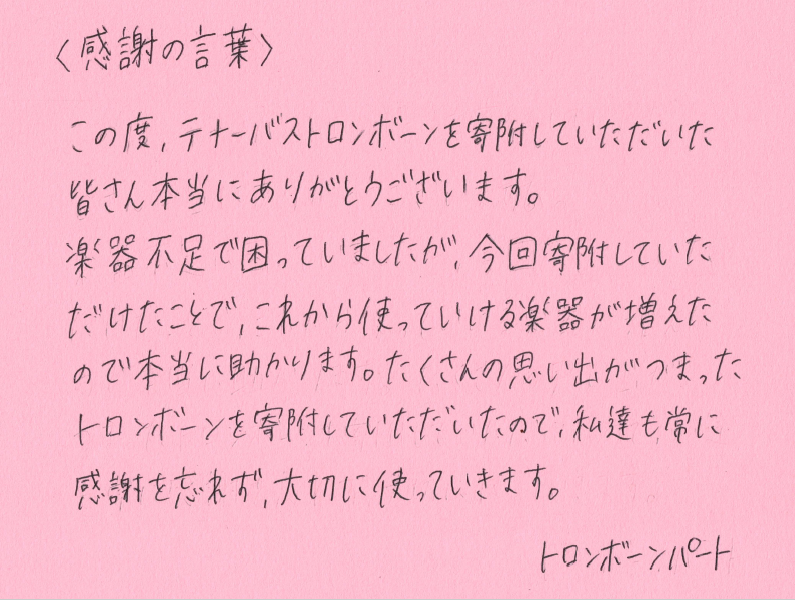 〈感謝の言葉〉
この度,テナーバストロンボーンを寄附していただいた
皆さん本当にありがとうございます。
楽器不足で困っていましたが,今回寄附していた
だけたことで,これから使っていける楽器が増えた
ので本当に助かります。たくさんの思い出がつまった
トロンボーンを寄附していただいたので,私達も常に
感謝を忘れず,大切に使っていきます。
トロンボーンパート